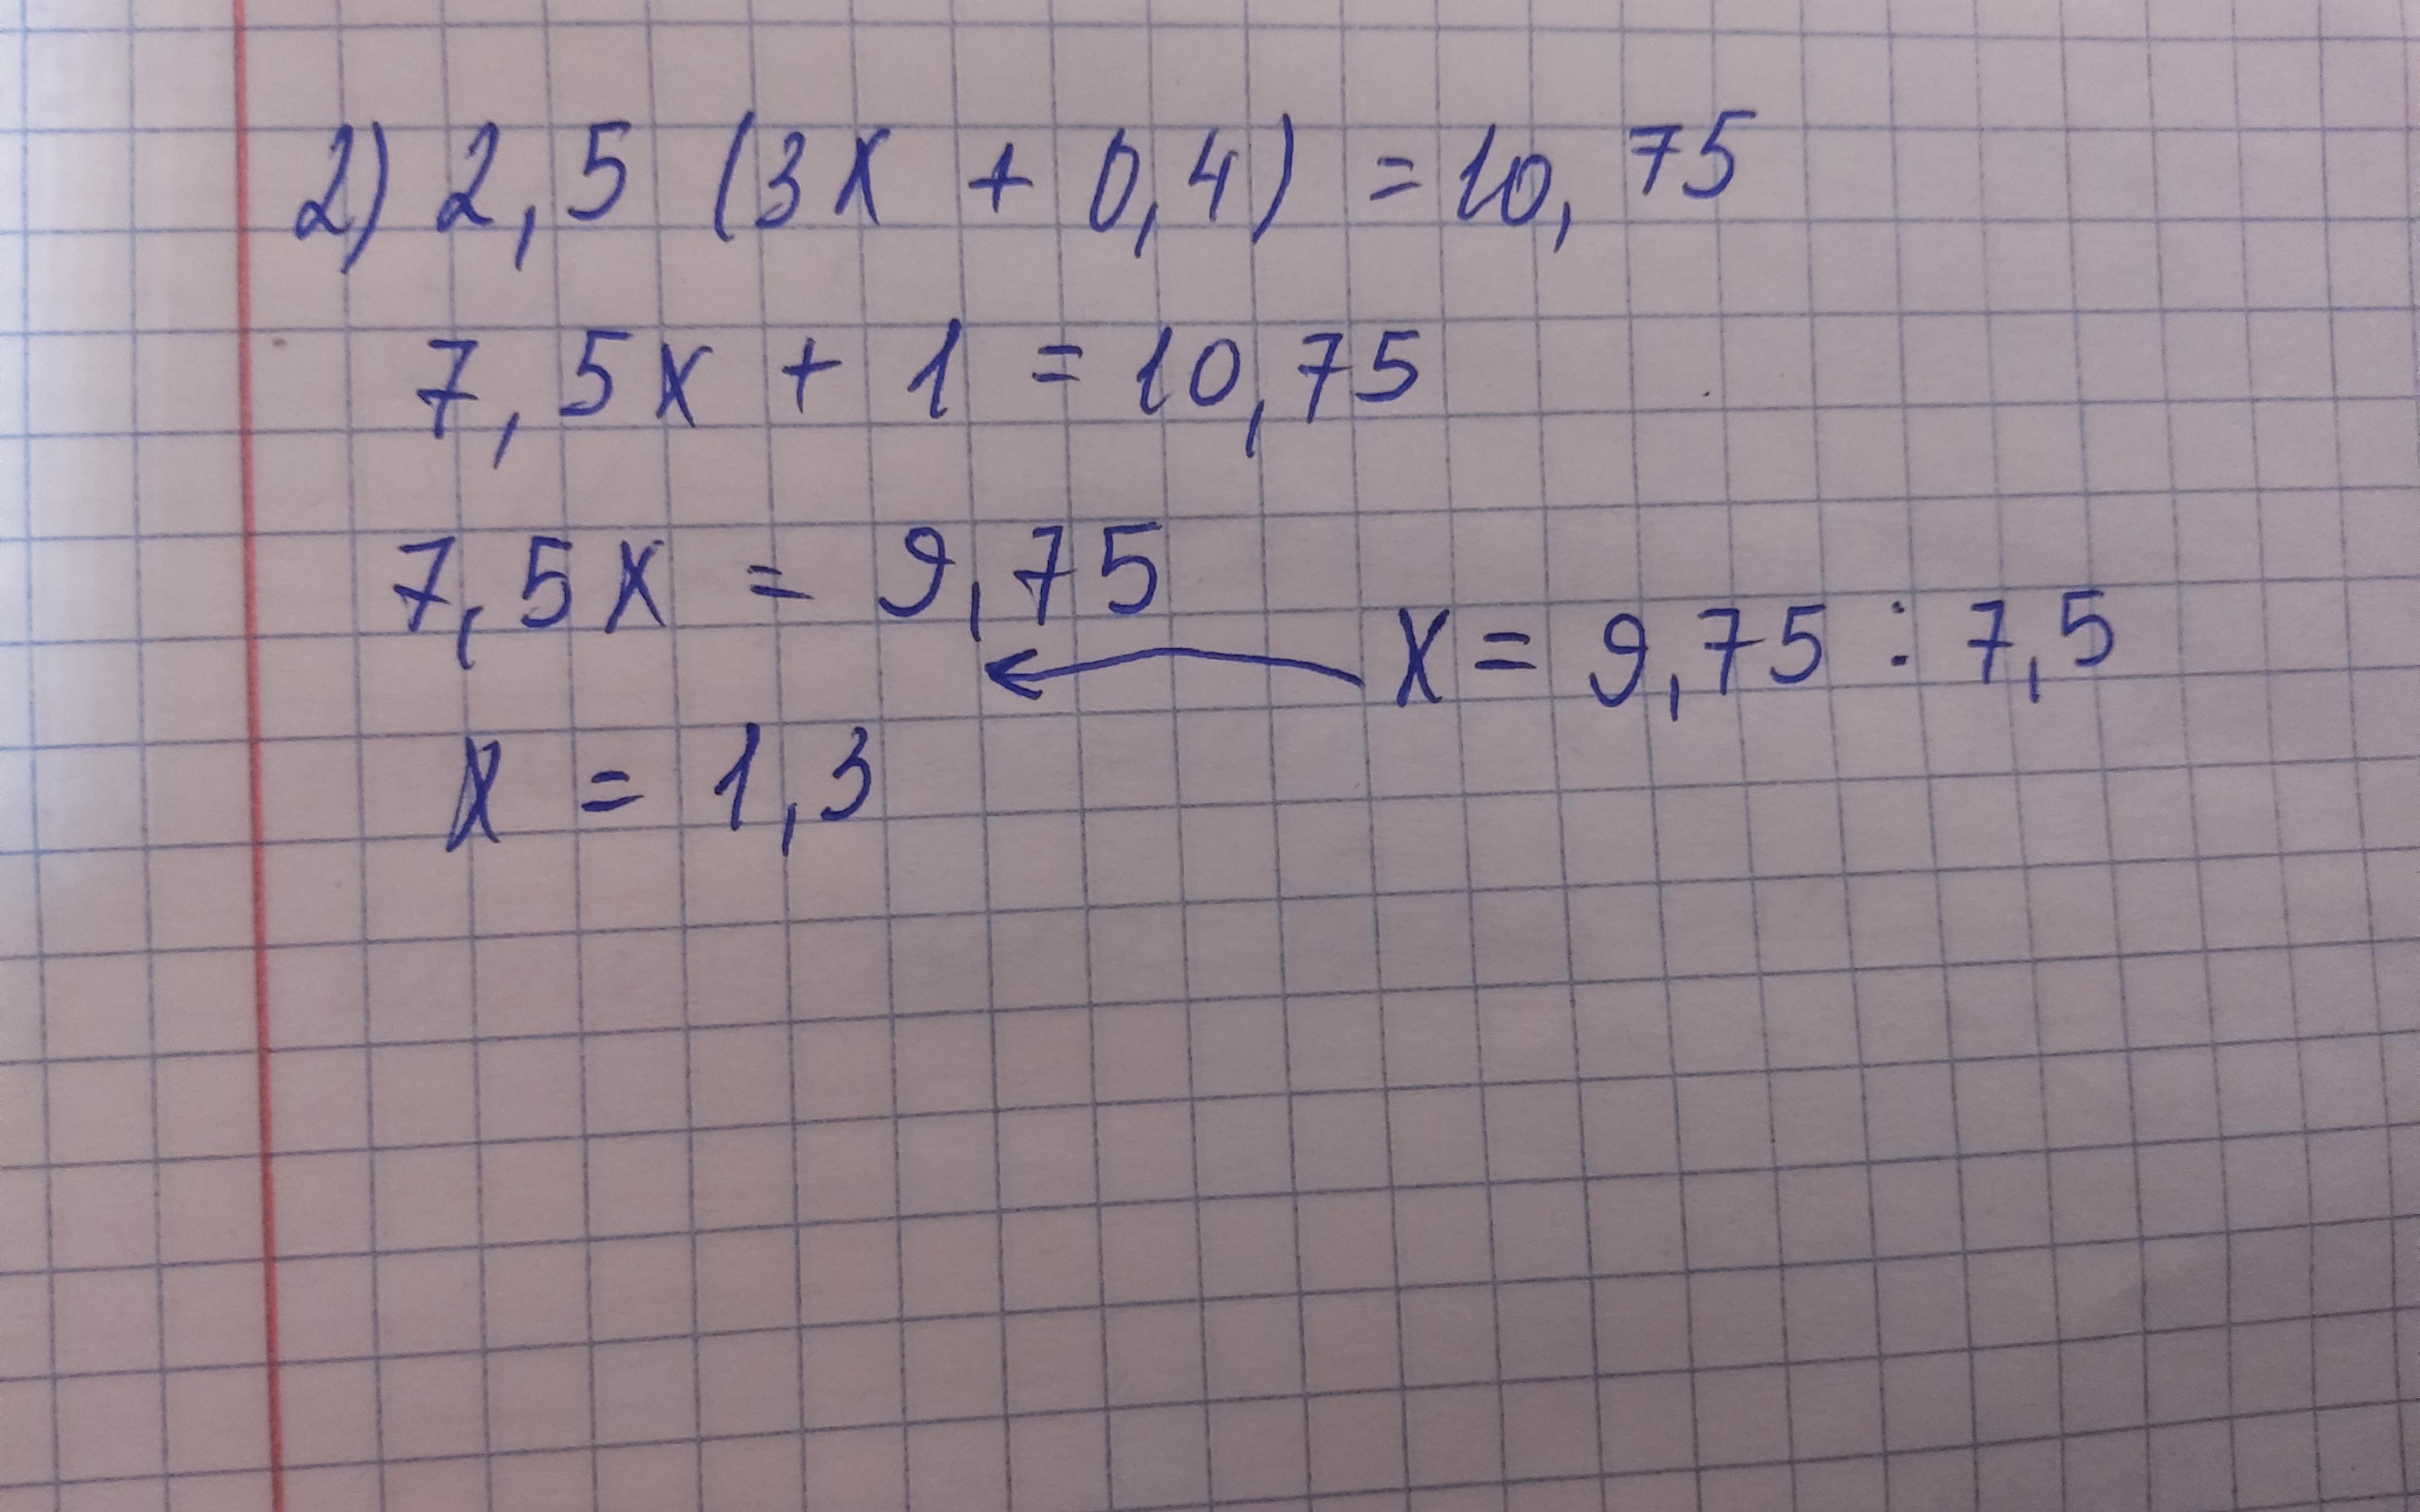 2) 2,5 (3x + 0,4) = 10,75
7,5x + 1 = 10,75
7,5x = 9,75
x = 9,75 : 7,5
x = 1,3